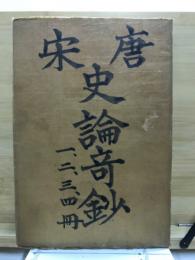 唐宋
史論奇鈔
一、二、三、四冊